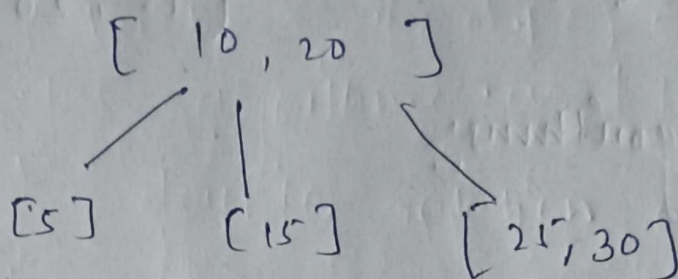 [ 10, 20 ]
[5] [15] [25, 30]